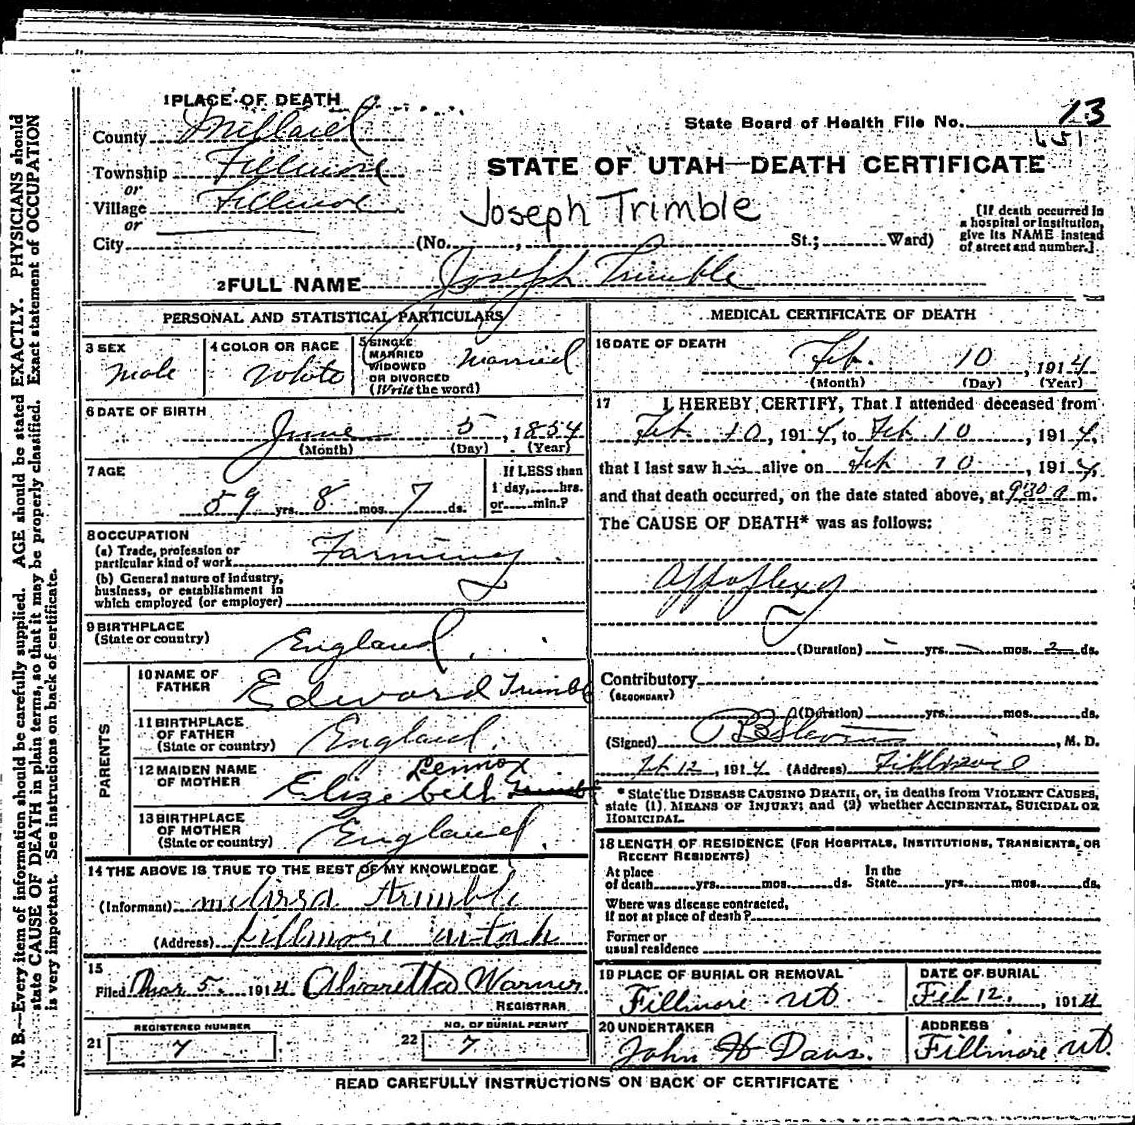 1 PLACE OF DEATH
County Millard
Township Fillmore
or
Village Fillmore
or
City (No. , St.; Ward)
State Board of Health File No. 13
651
STATE OF UTAH—DEATH CERTIFICATE
Joseph Trimble
[If death occurred in
a hospital or institution,
give its NAME instead
of street and number.]
2 FULL NAME Joseph Trimble
PERSONAL AND STATISTICAL PARTICULARS
3 SEX
Male
4 COLOR OR RACE
White
5 SINGLE
MARRIED
WIDOWED
OR DIVORCED
(Write the word)
Married
6 DATE OF BIRTH
June 5, 1854
(Month) (Day) (Year)
7 AGE
59 yrs. 8 mos. 7 ds.
If LESS than
1 day, hrs.
or min.?
8 OCCUPATION
(a) Trade, profession or
particular kind of work Farming
(b) General nature of industry,
business, or establishment in
which employed (or employer)
9 BIRTHPLACE
(State or country) England
PARENTS
10 NAME OF
FATHER Edward Trimble
11 BIRTHPLACE
OF FATHER
(State or country) England
12 MAIDEN NAME
OF MOTHER
Lennox
Elizabeth
13 BIRTHPLACE
OF MOTHER
(State or country) England
14 THE ABOVE IS TRUE TO THE BEST OF MY KNOWLEDGE
(Informant) Melissa Trimble
(Address) Fillmore utah
15
Filed Mar 5. 1914 Alvaretta Warner
REGISTRAR
REGISTERED NUMBER
21 7
NO. OF BURIAL PERMIT
22 7
MEDICAL CERTIFICATE OF DEATH
16 DATE OF DEATH
Feb. 10, 1914
(Month) (Day) (Year)
17 I HEREBY CERTIFY, That I attended deceased from
Feb 10, 1914, to Feb 10, 1914,
that I last saw him alive on Feb 10, 1914,
and that death occurred, on the date stated above, at 9:30 a m.
The CAUSE OF DEATH* was as follows:
Appoplexy
(Duration) - yrs. - mos. 2 ds.
Contributory
(SECONDARY)
(Duration) yrs. mos. ds.
(Signed) Stevens, M. D.
Feb 12, 1914 (Address) Fillmore
* State the DISEASE CAUSING DEATH, or, in deaths from VIOLENT CAUSES,
state (1) MEANS OF INJURY; and (2) whether ACCIDENTAL, SUICIDAL OR
HOMICIDAL.
18 LENGTH OF RESIDENCE (FOR HOSPITALS, INSTITUTIONS, TRANSIENTS, OR
RECENT RESIDENTS)
At place
of death yrs. mos. ds.
In the
State yrs. mos. ds.
Where was disease contracted,
if not at place of death?
Former or
usual residence
19 PLACE OF BURIAL OR REMOVAL
Fillmore Ut
DATE OF BURIAL
Feb 12., 1914
20 UNDERTAKER
John H Davs.
ADDRESS
Fillmore Ut.
READ CAREFULLY INSTRUCTIONS ON BACK OF CERTIFICATE
N. B.—Every item of information should be carefully supplied. AGE should be stated EXACTLY. PHYSICIANS should
state CAUSE OF DEATH in plain terms, so that it may be properly classified. Exact statement of OCCUPATION
is very important. See instructions on back of certificate.